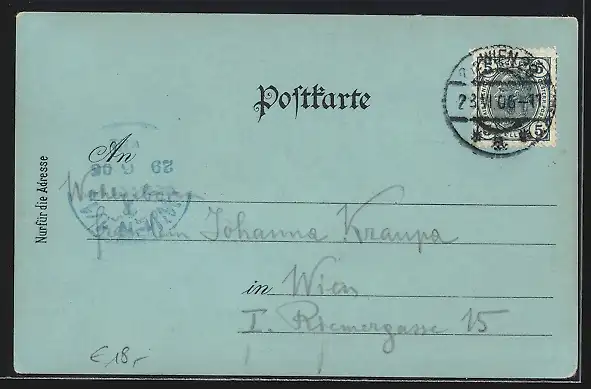 WIEN
28 VI 06-11
5
5
Postkarte
An
29 6 06
Wohlgeborn
Fräulein Johanna Kraupa
in Wien
I. Riemergasse 15
Nur für die Adresse
€ 18,-